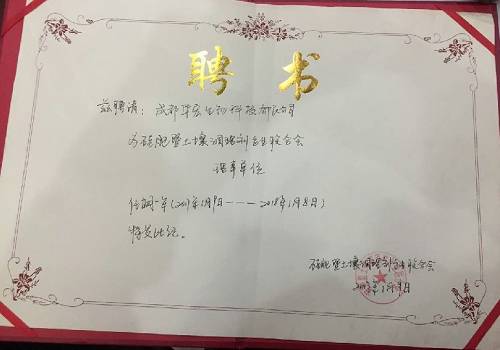 聘书
兹聘请：成都华宏生物科技有限公司
为硅肥暨土壤调理剂产业联合会
理事单位
任期一年（2017年1月9日——2018年1月8日）
特发此证。
硅肥暨土壤调理剂产业联合会